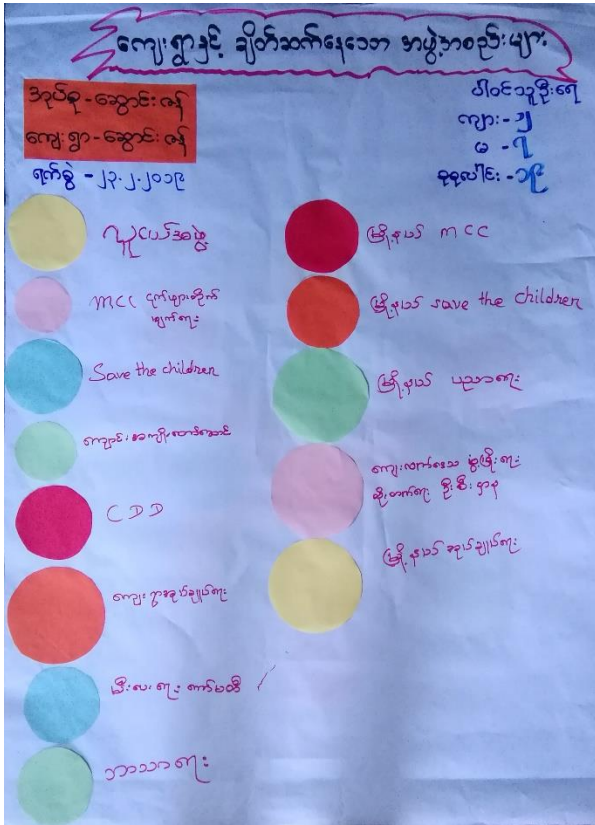 ကျေးရွာနှင့် ချိတ်ဆက်နေသော အဖွဲ့အစည်းများ
အုပ်စု - ဆောင်းဇန်
ကျေးရွာ - ဆောင်းဇန်
ရက်စွဲ - ၂၃.၂.၂၀၁၉
ပါဝင်သူဦးရေ
ကျား - ၂
မ - ၇
စုစုပေါင်း - ၁၉
လူငယ်အဖွဲ့
MCC ငှက်ဖျားတိုက်
ဖျက်ရေး
Save the children
ကျောင်းအကျိုးတော်ဆောင်
CDD
ကျေးရွာအုပ်ချုပ်ရေး
မီးလင်းရေး ကော်မတီ
ဘာသာရေး
မြို့နယ် MCC
မြို့နယ် save the children
မြို့နယ် ပညာရေး
ကျေးလက်ဒေသ ဖွံ့ဖြိုးရေး
တိုးတက်ရေး ဦးစီးဌာန
မြို့နယ် အုပ်ချုပ်ရေး